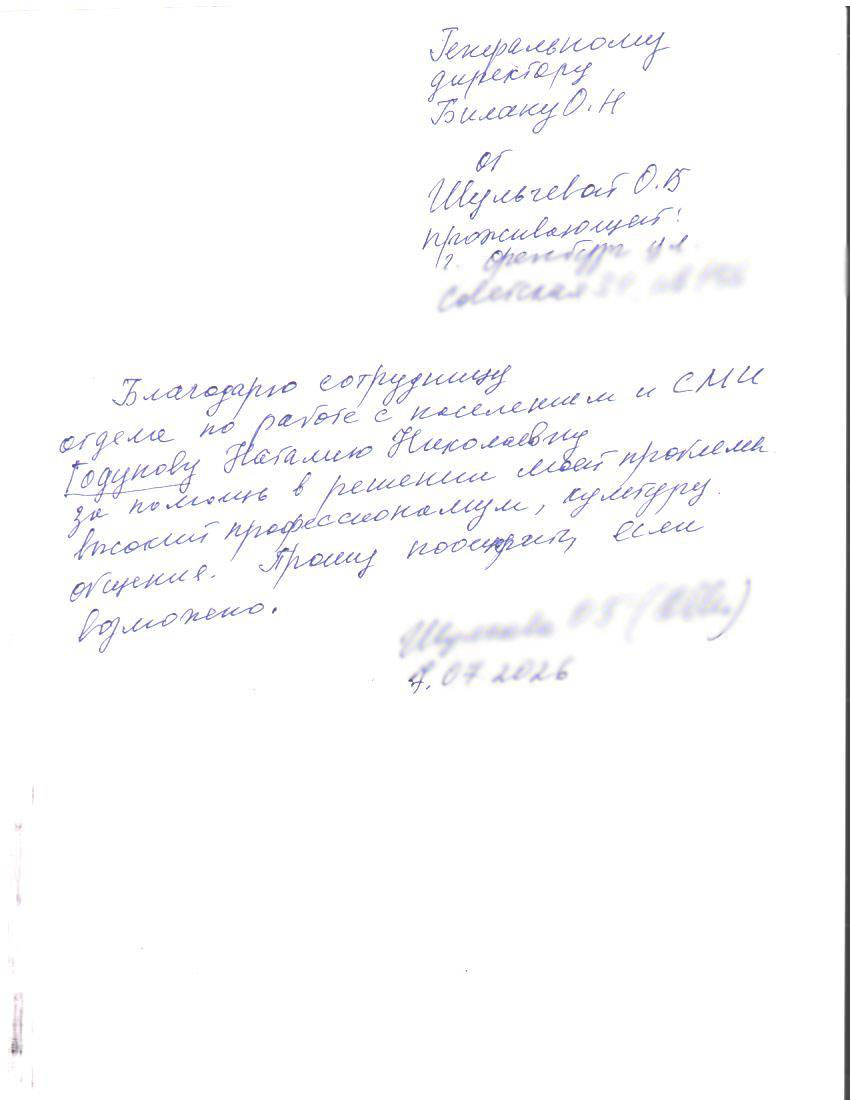 Генеральному
директору
Билаку О.Н
от
Шульчевой О.В
проживающей:
г. Оренбург ул.
Советская
Благодарю сотрудницу
отдела по работе с населением и СМИ
Годунову Наталию Николаевну
за помощь в решении моей проблемы
высокий профессионализм, культуру
общения. Прошу поощрить, если
возможено.
7.07.2026